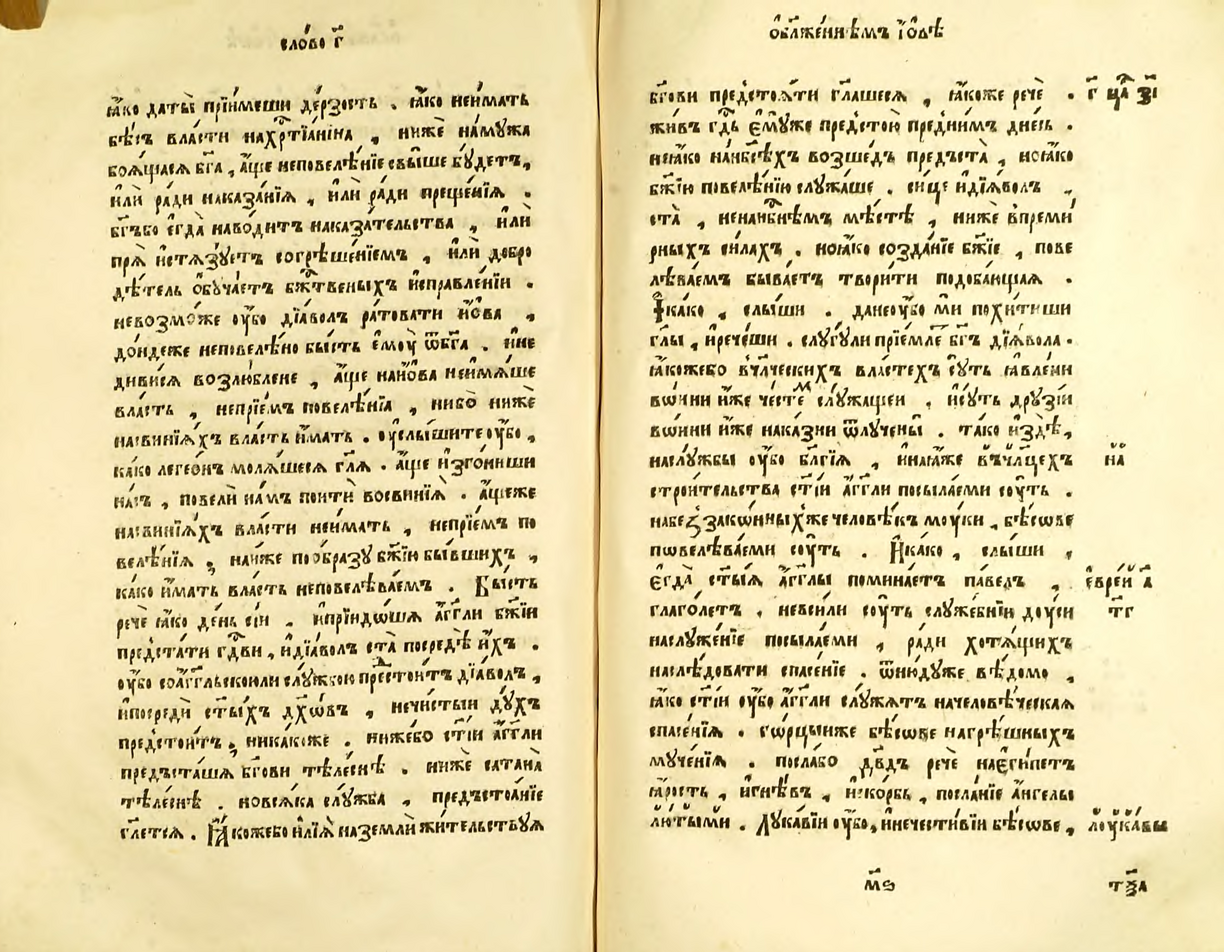 сло́во г҃
ꙗ҆́ко даты̀ прїи́меши де́рзость . ꙗ҆́ко неи́мать
бѣ́съ вла́сти нахрⷭ҇тїа́нїна , нижѐ на́мужа
боѧ́щасѧ бг҃а , а҆́ще неповелѣ́нїе свы́ше бу́детъ ,
и҆лѝ ра́ди наказа́нїѧ , и҆лѝ ра́ди преще́нїѧ .
бг҃ъбо є҆гда̀ наво́дитъ наказа́тельства , и҆лѝ
прѧ̀ и҆стѧзу́етъ согрѣше́нїемъ , и҆лѝ добро
дѣ́тель ѻ҆буча́етъ бжⷭ҇твеныхъ и҆справле́нїи .
невозмо́же оу҆́бо дїа́волъ ра́товати и҆́ѡва ,
до́ндеже неповелѣ́но бы́сть є҆моу̀ ѿбг҃а . и҆не
диви́сѧ возлю́блене , а҆́ще наи҆́ѡва неи҆мѧ́ше
вла́сть , неприе́мъ повелѣ́нїа , ни́бо ниже
насвинїѧ́хъ вла́сть и҆́мать . оу҆слы́шите оу҆́бо ,
ка́ко легеѡ́нъ молѧ́шесѧ гл҃ѧ . а҆́ще и҆зго́ниши
на́съ , повелѝ на́мъ поитѝ восвинїѧ̀ . а҆́щеже
насвинїѧ́хъ вла́сти неи́мать , неприе́мъ по
велѣ́нїѧ , наи́же поо́бразу бж҃їю бы́вшихъ ,
ка́ко и҆́мать вла́сть неповелѣва́емъ . Бы́сть
речѐ ꙗ҆́ко де́нь се́и . и҆прїидѡ́шѧ а҆́гг҃ли бж҃їи
предста́ти гдⷭ҇ви , и҆дїа́волъ ста̀ посредѣ̀ и҆́хъ .
оу҆́бо соа́гг҃льскоили слу́жбою престои́тъ дїа́волъ ,
и҆посредѝ ст҃ы́хъ дх҃ѡ́въ , нечи́стыи ду́хъ
предстои́тъ , ника́коже . ни́жебо ст҃і́и а҆́гг҃ли
предъста́шѧ бг҃ови тѣле́снѣ . нижѐ сатана̀
тѣле́снѣ . новсѧ́ка слу́жба , предъстоѧ́нїе
гл҃етсѧ . Ꙗ҆́кожебо и҆лїѧ̀ наземлѝ жи́тельствуѧ
ѡ҆блаже́ннѣмъ і҆́ѡвѣ
бг҃ови предстоѧ́ти гл҃ашесѧ , ꙗ҆́коже речѐ .
г҃ црⷭ҇ зі҃
жи́въ гдⷭ҇ь є҆му́же предстою̀ предни́мъ дне́сь .
неꙗ҆́ко нанбсѣ́хъ возше́дъ предъста̀ , ноꙗ҆́ко
бж҃їю повелѣ́нїю служа́ше . си́це и҆дїѧ́волъ ,
ста̀ , ненанб҃нѣмъ мѣ́стѣ , нижѐ впреми́
рныхъ си́лахъ . ноꙗ҆́ко созда́нїе бж҃їе , пове
лѣва́емъ быва́етъ твори́ти подоба́ющаѧ .
И҆ка́ко , слы́ши . данеоу҆́бо мѝ похи́тиши
гл҃ы , и҆рече́ши . слугу́ли прїе́мле бг҃ъ дїѧ́вола .
ꙗ҆́кожебо вчл҃ческихъ власте́хъ су́ть ꙗ҆вле́ни
во́ини и҆́же че́стемъ служа́щеи . и҆су́ть друзі́и
во́ини и҆́же наказни ѿлуче́ны . та́ко и҆здѣ̀ ,
наслу́жбы оу҆́бо блг҃і́ѧ , и҆наꙗ҆́же въчл҃цехъ
на
строи́тельства ст҃і́и а҆́гг҃ли посыла́еми соу́ть .
набеззако́нныхже человѣ́къ моу́ки , бѣ́сѡве
повелѣва́еми соу́ть . И҆ка́ко , слы́ши ,
є҆гда̀ ст҃ы́ѧ а҆́гг҃лы помина́етъ па́велъ ,
є҆вре́и а҃
глаго́летъ . неvси́ли соу́ть служе́бнїи ду́си
т҃г
наслуже́нїе посыла́еми , ра́ди хотѧ́щихъ
наслѣ́довати спасе́нїе . ѿню́дуже вѣ́домо ,
ꙗ҆́ко ст҃і́и оу҆́бо а҆́гг҃ли слу́жатъ начеловѣ́ческаѧ
спасе́нїѧ . го́рцыиже бѣ́сѡве нагрѣ́шныхъ
муче́нїѧ . посла́бо дв҃дъ речѐ нає҆ги́петъ
ꙗ҆́рость , и҆гнѣ́въ , и҆ско́рбь , посла́нїе а҆́нгелы
лю́тыми . Лука́вїи оу҆́бо , и҆нечести́вїи бѣ́сѡве ,
лоука́вы
тч҃а